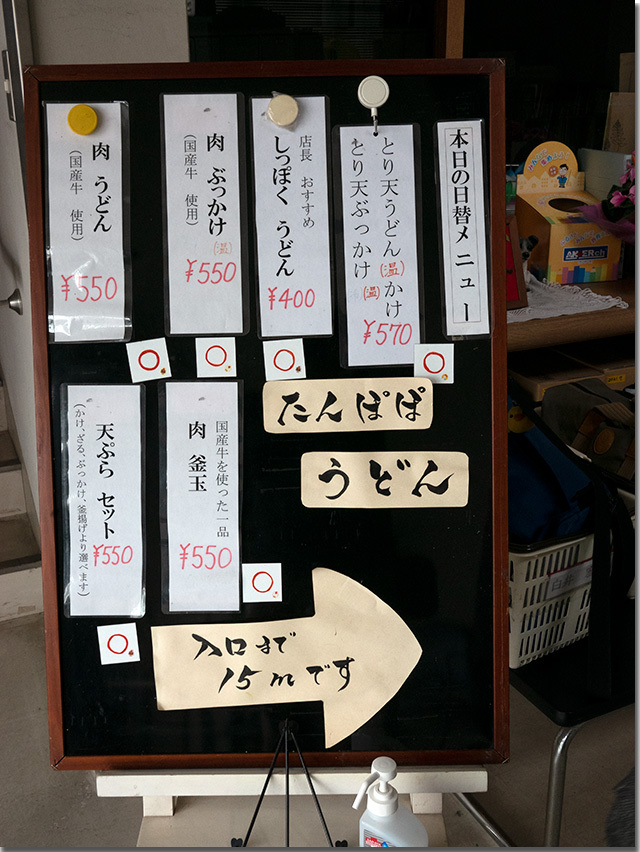 本日の日替メニュー
とり天うどん(温)かけ
とり天ぶっかけ(温)
¥570
店長 おすすめ
しっぽく うどん
¥400
肉 ぶっかけ(温)
(国産牛 使用)
¥550
肉 うどん
(国産牛 使用)
¥550
国産牛を使った一品
肉 釜玉
¥550
天ぷら セット
(かけ、ざる、ぶっかけ、釜揚げより選べます)
¥550
たんぽぽ
うどん
入口まで
15mです